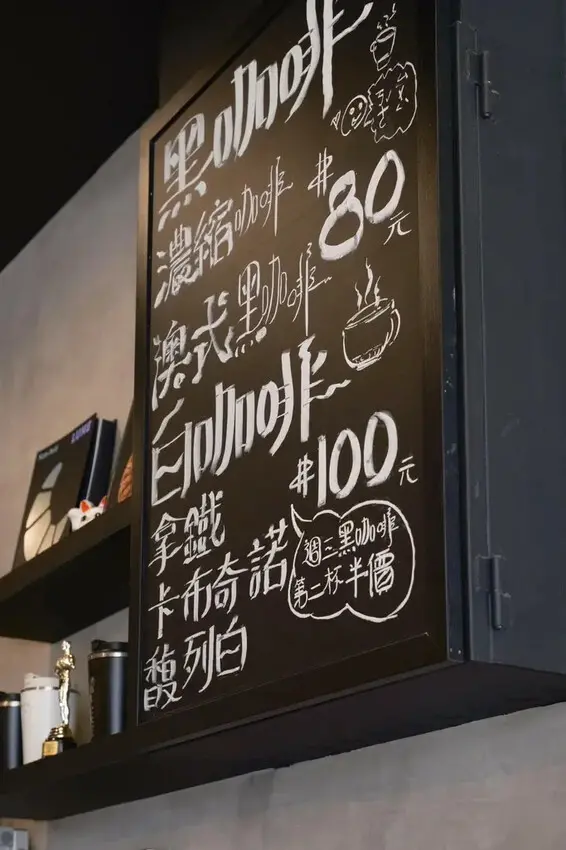 黑咖啡
濃縮咖啡
#80元
澳式黑咖啡
白咖啡
#100元
拿鐵
卡布奇諾
馥列白
週三黑咖啡
第二杯半價